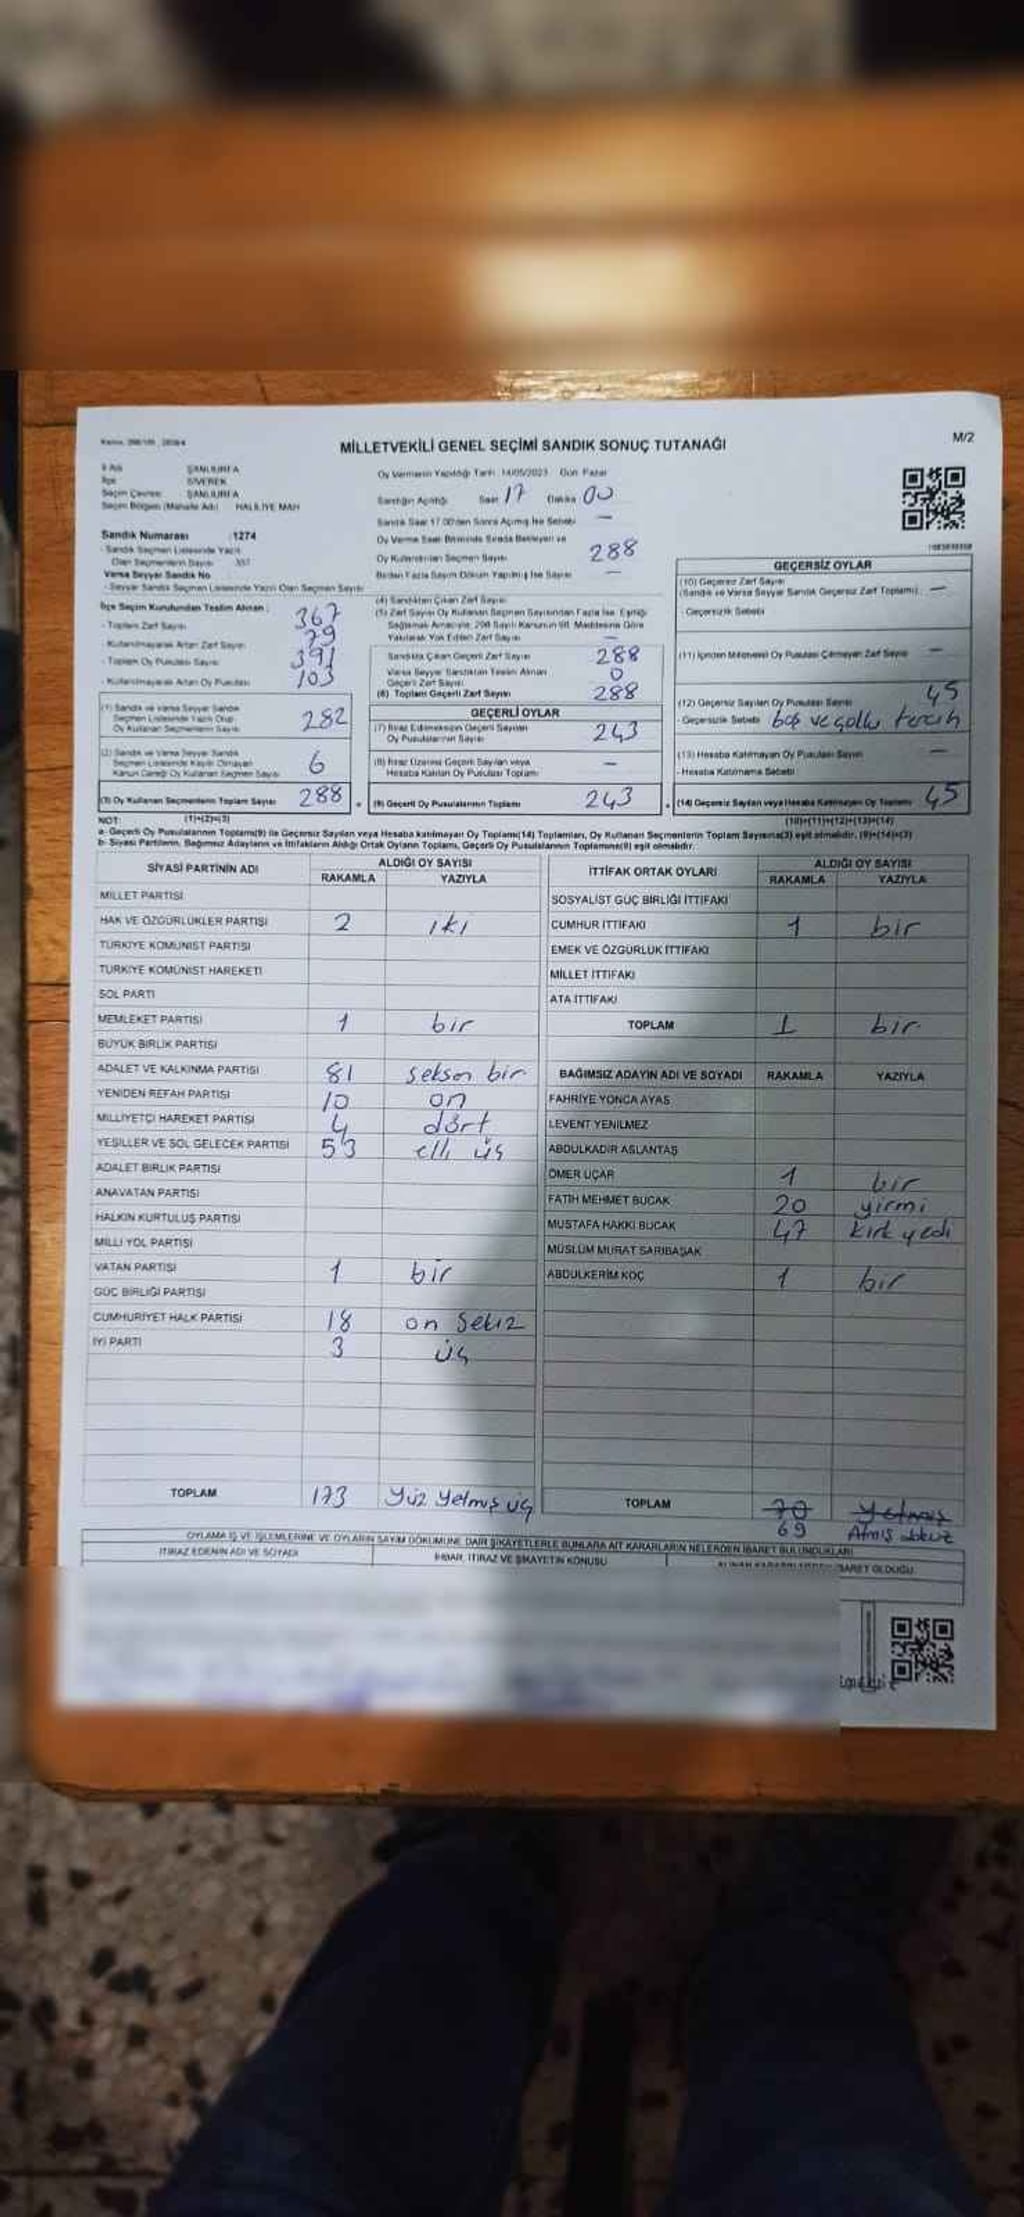 MİLLETVEKİLİ GENEL SEÇİMİ SANDIK SONUÇ TUTANAĞI
M/2
İl Adı ŞANLIURFA
İlçe SİVEREK
Seçim Çevresi ŞANLIURFA
Seçim Bölgesi (Mahalle Adı) HALİLİYE MAH
Sandık Numarası : 1274
- Sandık Seçmen Listesinde Yazılı
Olan Seçmenlerin Sayısı
Varsa Seyyar Sandık No
- Seyyar Sandık Seçmen Listesinde Yazılı Olan Seçmen Sayısı
İlçe Seçim Kurulundan Teslim Alınan :
- Toplam Zarf Sayısı 367
- Kullanılmayarak Artan Zarf Sayısı 79
- Toplam Oy Pusulası Sayısı 391
- Kullanılmayarak Artan Oy Pusulası 103
(1) Sandık ve Varsa Seyyar Sandık
Seçmen Listesinde Yazılı Olup
Oy Kullanan Seçmenlerin Sayısı 282
(2) Sandık ve Varsa Seyyar Sandık
Seçmen Listesinde Kaydı Olmayan
Kanun Gereği Oy Kullanan Seçmen Sayısı 6
(3) Oy Kullanan Seçmenlerin Toplam Sayısı 288
Oy Vermenin Yapıldığı Tarih: 14/05/2023 Gün: Pazar
Sandığın Açıldığı Saat 17 Dakika 00
Sandık Saat 17.00'den Sonra Açılmış İse Sebebi —
Oy Verme Saati Bitiminde Sırada Bekleyen ve
Oy Kullandırılan Seçmen Sayısı 288
Birden Fazla Sayım Döküm Yapılmış İse Sayısı —
(4) Sandıktan Çıkan Zarf Sayısı
(5) Zarf Sayısı Oy Kullanan Seçmen Sayısından Fazla İse, Eşitliği
Sağlamak Amacıyla, 298 Sayılı Kanunun 98. Maddesine Göre
Yakılarak Yok Edilen Zarf Sayısı —
Sandıkta Çıkan Geçerli Zarf Sayısı 288
Varsa Seyyar Sandıktan Teslim Alınan
Geçerli Zarf Sayısı 0
(6) Toplam Geçerli Zarf Sayısı 288
GEÇERLİ OYLAR
(7) İtiraz Edilmeksizin Geçerli Sayılan
Oy Pusulalarının Sayısı 243
(8) İtiraz Üzerine Geçerli Sayılan veya
Hesaba Katılan Oy Pusulası Toplamı —
(9) Geçerli Oy Pusulalarının Toplamı 243
GEÇERSİZ OYLAR
(10) Geçersiz Zarf Sayısı
(Sandık ve Varsa Seyyar Sandık Geçersiz Zarf Toplamı) —
- Geçersizlik Sebebi
(11) İçinden Milletvekili Oy Pusulası Çıkmayan Zarf Sayısı —
(12) Geçersiz Sayılan Oy Pusulası Sayısı 45
- Geçersizlik Sebebi boş ve çoklu tercih
(13) Hesaba Katılmayan Oy Pusulası Sayısı —
- Hesaba Katılmama Sebebi
(14) Geçersiz Sayılan veya Hesaba Katılmayan Oy Toplamı 45
NOT: (1)+(2)=(3) (10)+(11)+(12)+(13)=(14)
a- Geçerli Oy Pusulalarının Toplamı(9) ile Geçersiz Sayılan veya Hesaba katılmayan Oy Toplamı(14) Toplamları, Oy Kullanan Seçmenlerin Toplam Sayısına(3) eşit olmalıdır. (9)+(14)=(3)
b- Siyasi Partilerin, Bağımsız Adayların ve İttifakların Aldığı Ortak Oyların Toplamı, Geçerli Oy Pusulalarının Toplamına(9) eşit olmalıdır.
SİYASİ PARTİNİN ADI ALDIĞI OY SAYISI
RAKAMLA YAZIYLA
MİLLET PARTİSİ
HAK VE ÖZGÜRLÜKLER PARTİSİ 2 iki
TÜRKİYE KOMÜNİST PARTİSİ
TÜRKİYE KOMÜNİST HAREKETİ
SOL PARTİ
MEMLEKET PARTİSİ 1 bir
BÜYÜK BİRLİK PARTİSİ
ADALET VE KALKINMA PARTİSİ 81 seksen bir
YENİDEN REFAH PARTİSİ 10 on
MİLLİYETÇİ HAREKET PARTİSİ 4 dört
YEŞİLLER VE SOL GELECEK PARTİSİ 53 elli üç
ADALET BİRLİK PARTİSİ
ANAVATAN PARTİSİ
HALKIN KURTULUŞ PARTİSİ
MİLLİ YOL PARTİSİ
VATAN PARTİSİ 1 bir
GÜÇ BİRLİĞİ PARTİSİ
CUMHURİYET HALK PARTİSİ 18 on sekiz
İYİ PARTİ 3 üç
TOPLAM 173 Yüz Yetmiş üç
İTTİFAK ORTAK OYLARI ALDIĞI OY SAYISI
RAKAMLA YAZIYLA
SOSYALİST GÜÇ BİRLİĞİ İTTİFAKI
CUMHUR İTTİFAKI 1 bir
EMEK VE ÖZGÜRLÜK İTTİFAKI
MİLLET İTTİFAKI
ATA İTTİFAKI
TOPLAM 1 bir
BAĞIMSIZ ADAYIN ADI VE SOYADI RAKAMLA YAZIYLA
FAHRİYE YONCA AYAS
LEVENT YENİLMEZ
ABDULKADİR ASLANTAŞ
ÖMER UÇAR 1 bir
FATİH MEHMET BUCAK 20 yirmi
MUSTAFA HAKKI BUCAK 47 kırk yedi
MÜSLÜM MURAT SARIBAŞAK
ABDULKERİM KOÇ 1 bir
TOPLAM 70 Yetmiş
69 Atmış dokuz
OYLAMA İŞ VE İŞLEMLERİNE VE OYLARIN SAYIM DÖKÜMÜNE DAİR ŞİKAYETLERLE BUNLARA AİT KARARLARIN NELERDEN İBARET BULUNDUKLARI
İTİRAZ EDENİN ADI VE SOYADI
İHBAR, İTİRAZ VE ŞİKAYETİN KONUSU